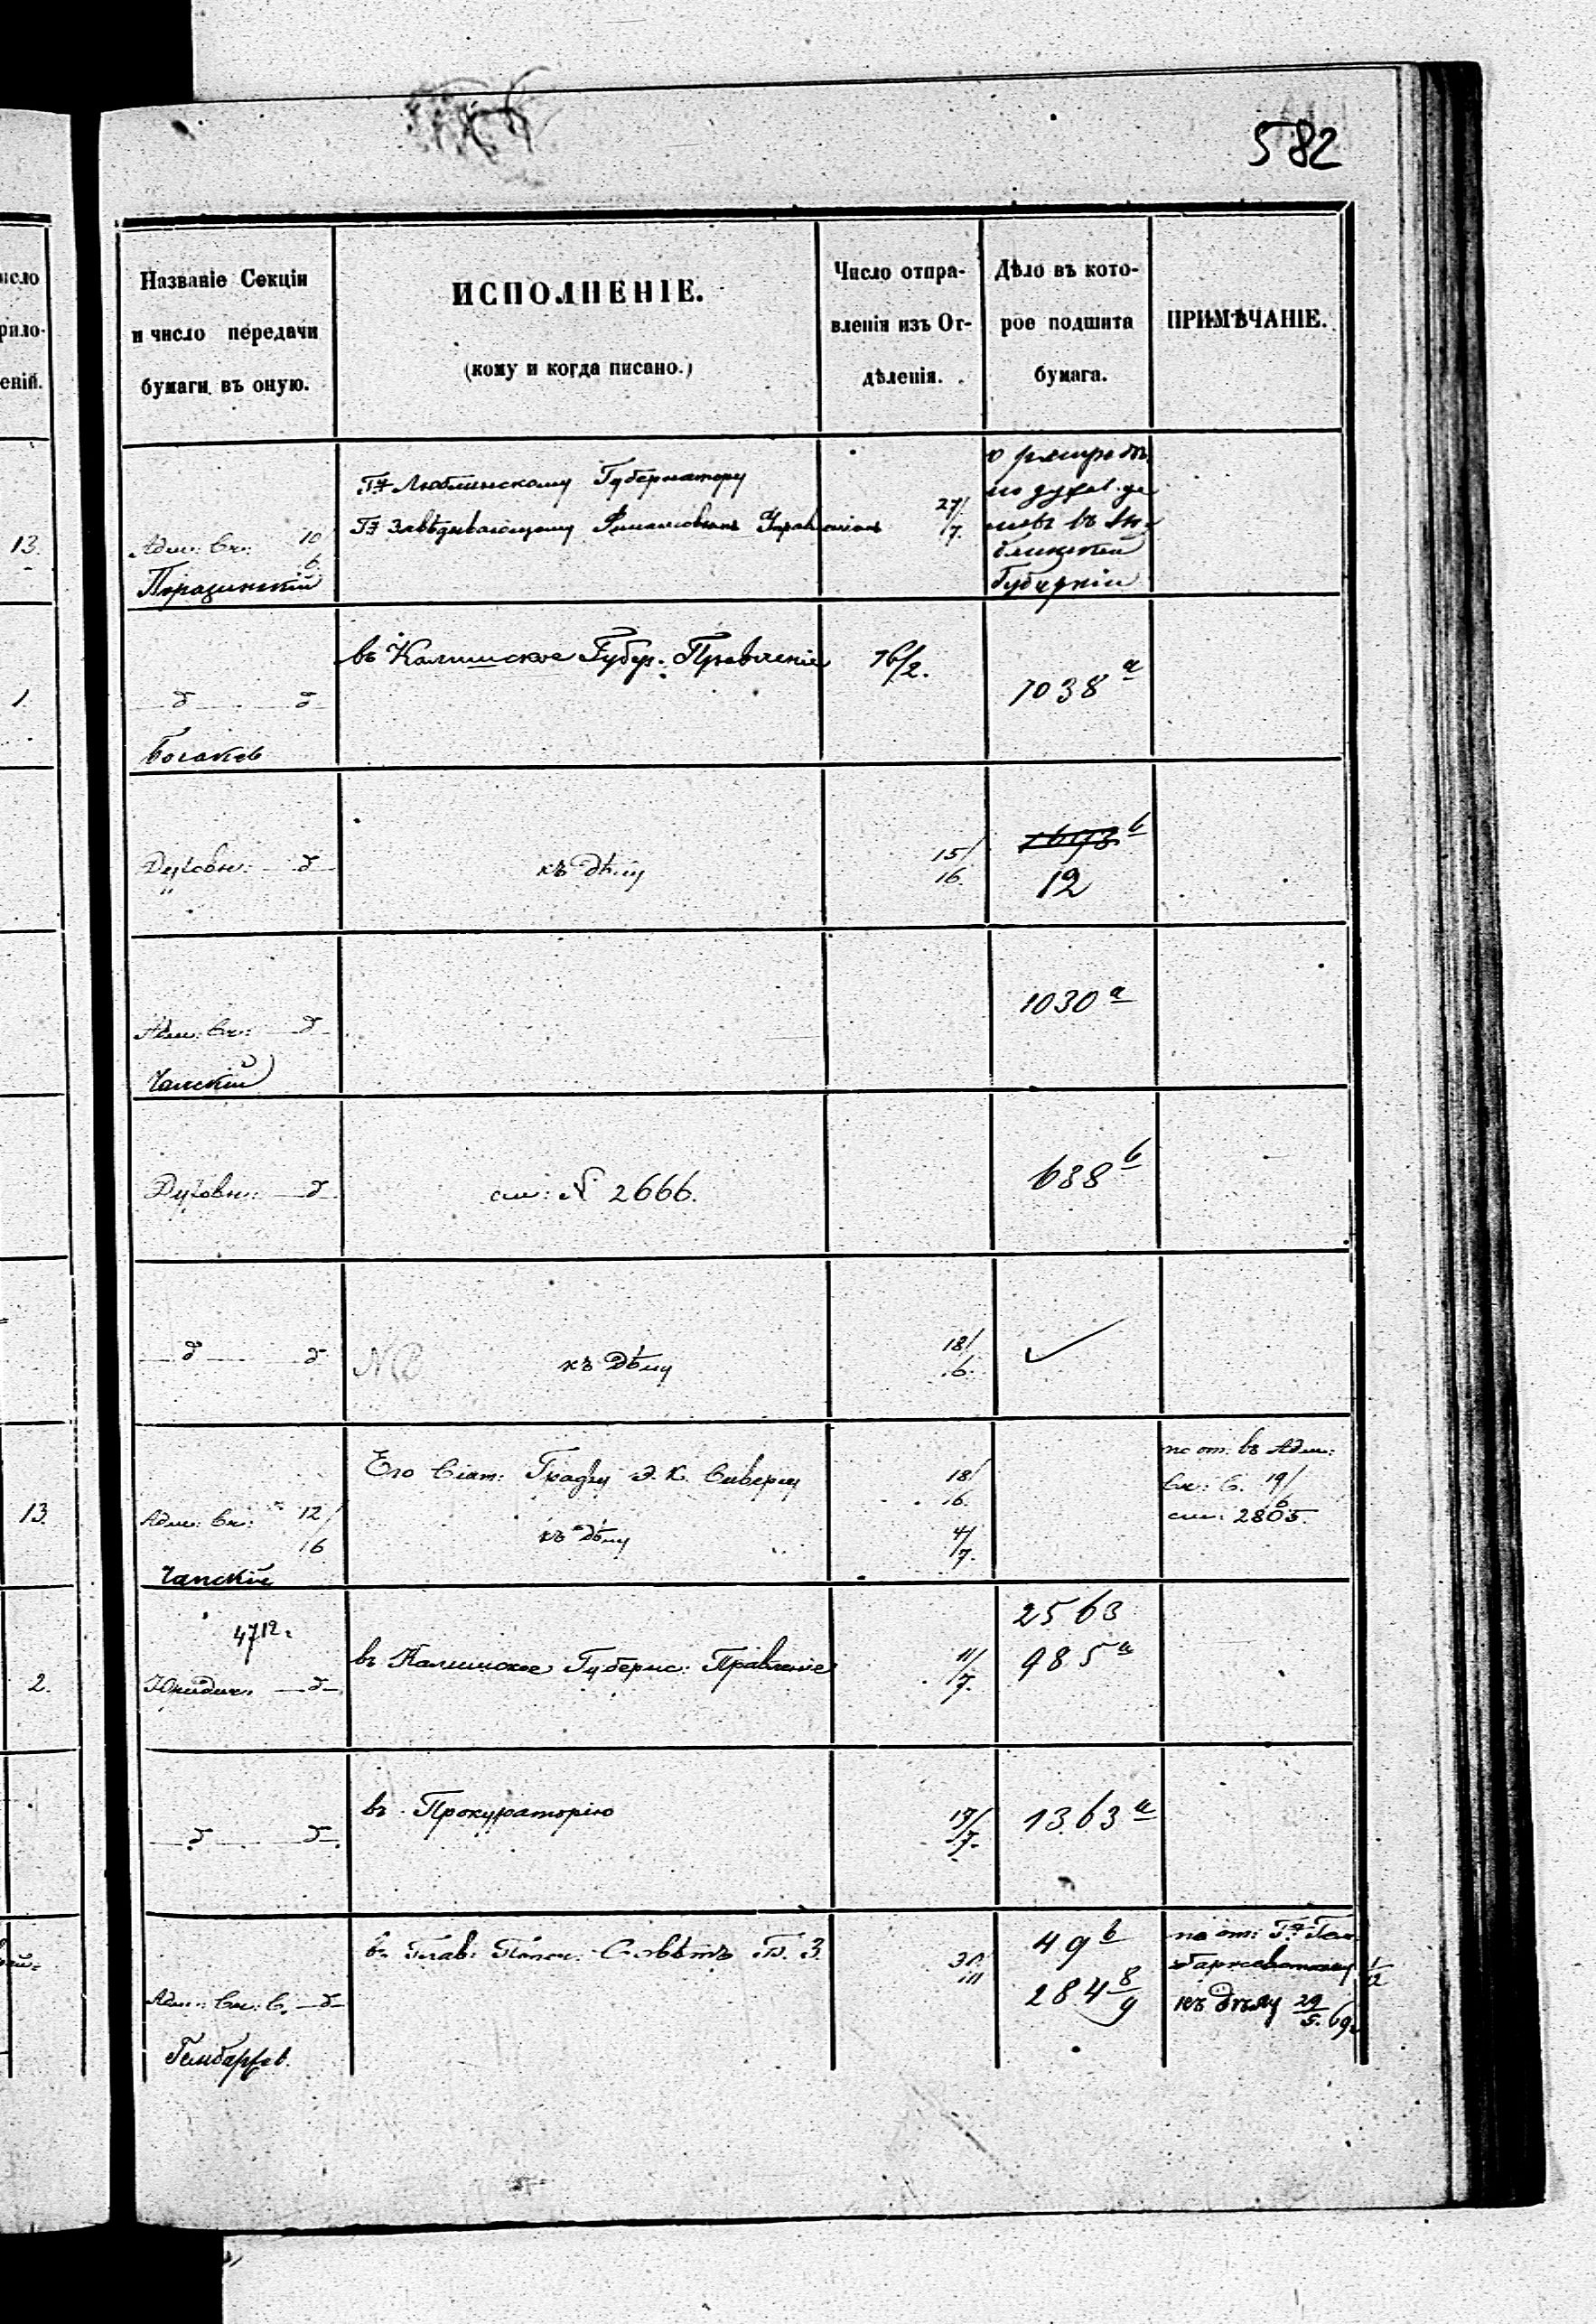 582
исло
рило-
еній.
Названіе Секціи
и число передачи
бумаги въ оную.
ИСПОЛНЕНІЕ.
(кому и когда писано.)
Число отпра-
вленія изъ От-
дѣленія.
Дѣло въ кото-
рое подшита
бумага.
ПРИМѢЧАНІЕ.
13.
Адм: Вк: 10/6
Гну Люблинскому Губернатору
Гну Завѣдывающему Финансовымъ Управленіемъ
27/7.
Губерніи
1
въ Калишское Губер: Правленіе
16/2.
1038 а
Духовн: д
къ дѣлу
15/16.
12
Адм: Вк: д
Чапскій
1030 а
Духовн: д
см: № 2666.
638 b
д д
NB
къ дѣлу
18/6.
13.
Адм: Вк: 12/6
Чапскій
Его Сіят: Графу Э. К. Сиверсу
къ дѣлу
18/6.
4/7.
по от: въ Адм:
Вк: С. 19/6
см: 2805.
2.
4712.
Юридич. д
въ Калишское Губернс: Правленіе
11/7.
2563
985 а
д д
въ Прокураторію
17/7.
1363 а
Адм: Вк: С. д
въ Глав: Попеч: Совѣтъ Б. З.
49 b
284 8/9
по от: Гну
1/12
къ дѣлу 29/5. 69